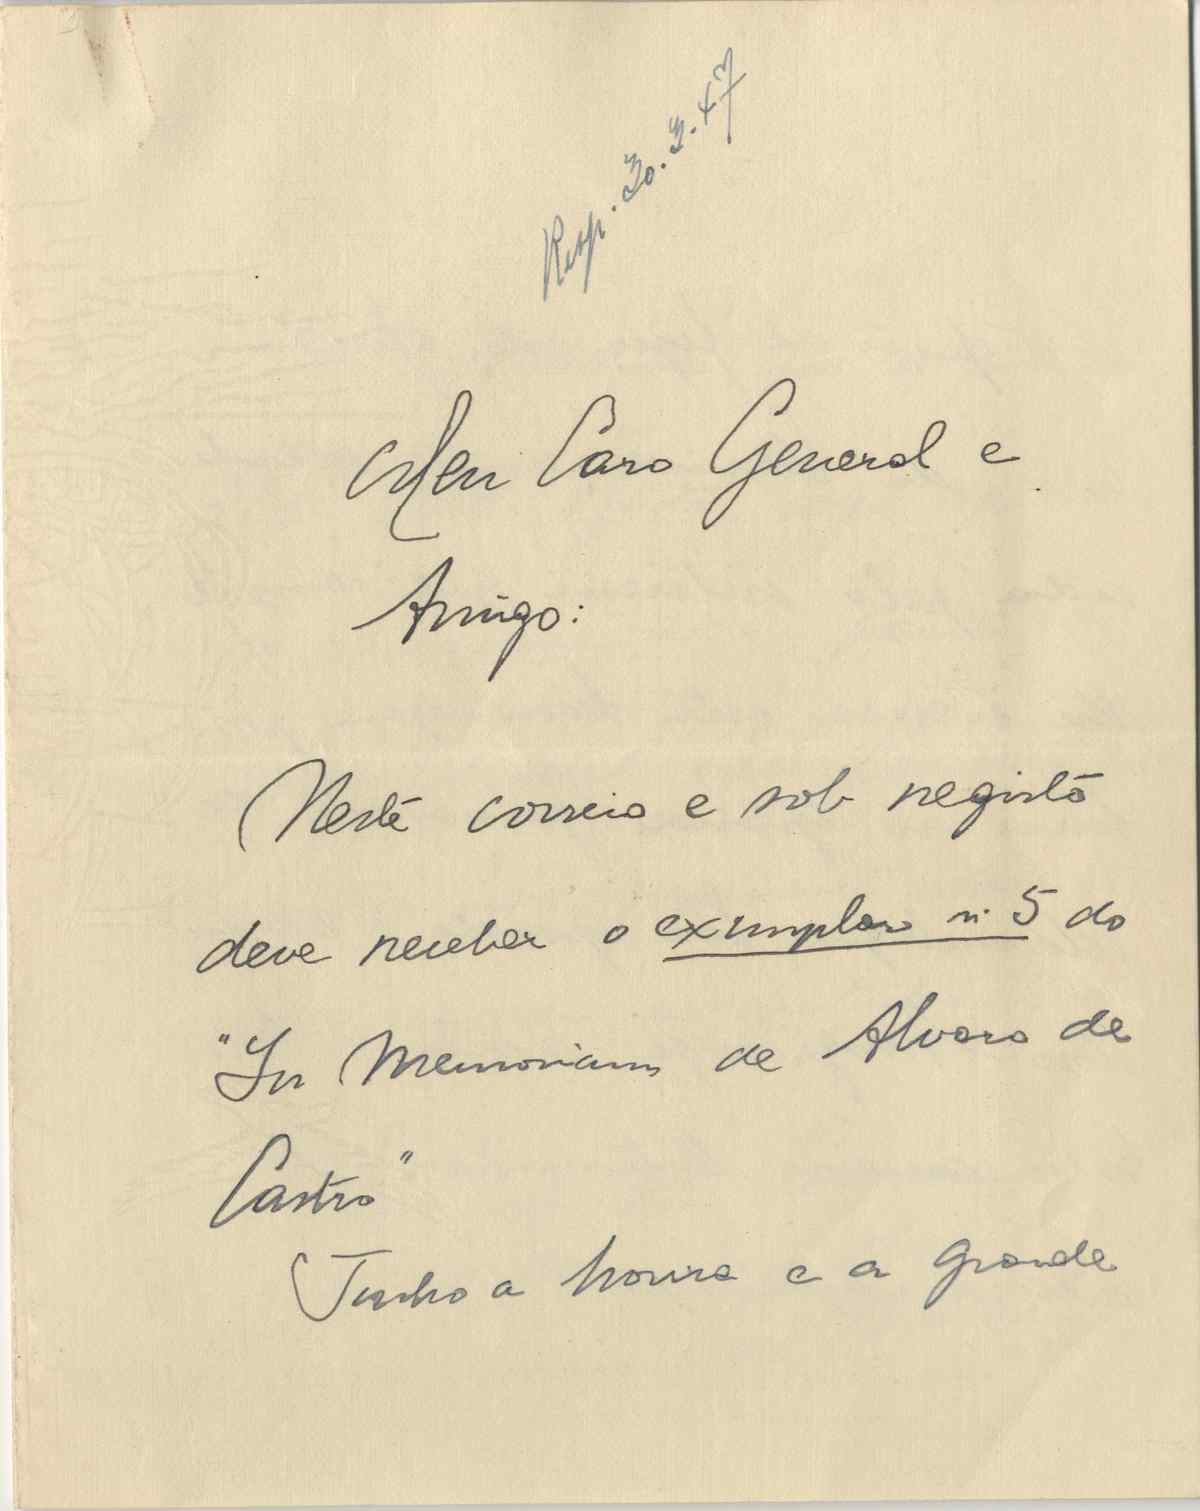 Resp. 30.3.47
Meu Caro General e
Amigo:
Neste correio e sob registo
deve receber o exemplar nº 5 do
"In Memoriam de Alvaro de
Castro"
Tenho a honra e a grande